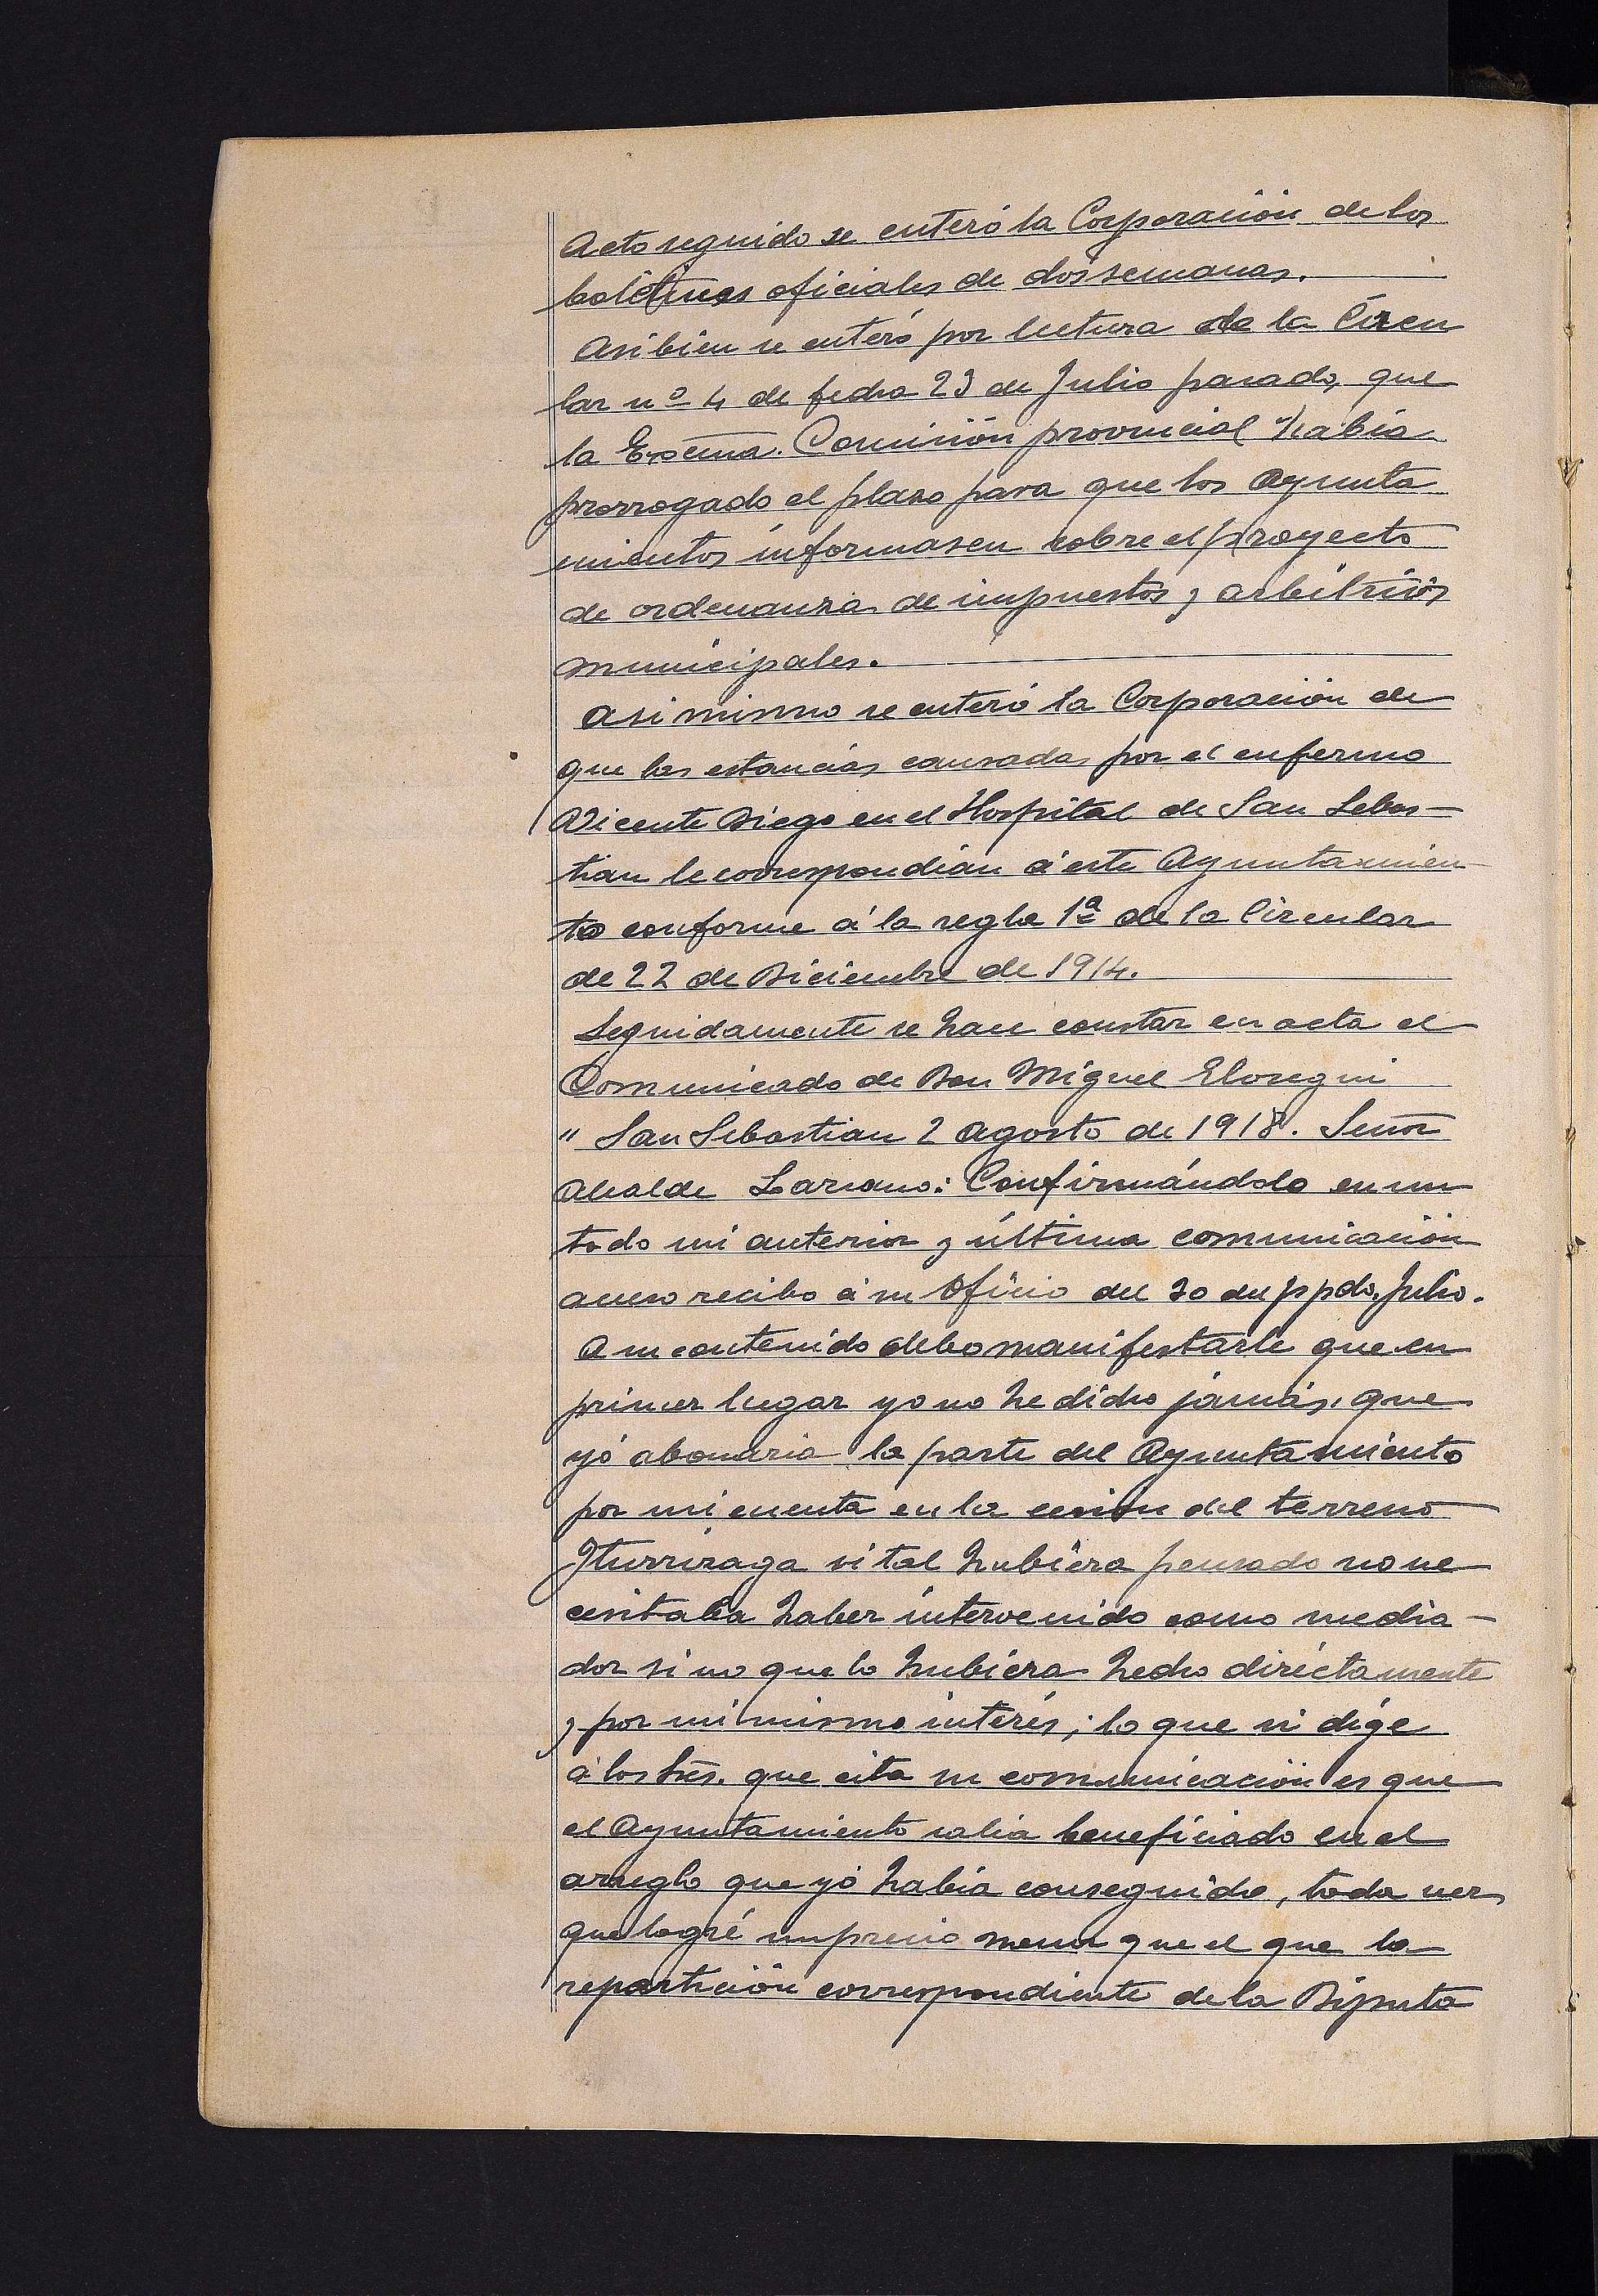 Acto seguido se enteró la Corporación de los
boletines oficiales de dos semanas.
Asi bien se enteró por lectura de la Circu
lar nº 4 de fecha 23 de Julio pasado, que
la Excma. Comisión provincial había
prorrogado el plazo para que los Ayunta
mientos informasen sobre el proyecto
de ordenanza de impuestos y arbitrios
municipales.
Asi mismo se enteró la Corporación de
que las estancias causadas por el enfermo
Vicente Diego en el Hospital de San Sebas-
tian le correspondian á este Ayuntamien-
to conforme á la regla 1ª de la Circular
de 22 de Diciembre de 1914.
Seguidamente se hace constar en acta el
Comunicado de Don Miguel Elosegui
" San Sebastian 2 Agosto de 1918. Señor
Alcalde Lazcano: Confirmándole en un
todo mi anterior y última comunicación
acuso recibo á su Oficio del 30 del ppdo. Julio.
A su contenido debo manifestarle que en
primer lugar yo no he dicho jamás, que
yó abonaria la parte del Ayuntamiento
por mi cuenta en la cesión del terreno
Iturrizaga si tal hubiera pensado no ne
cesitaba haber intervenido como media-
dor si no que lo hubiera hecho diréctamente
y por mi mismo interés; lo que si dige
á los Sres. que cita su comunicación es que
el Ayuntamiento salia beneficiado en el
arreglo que yó había conseguido, toda vez
que logré un precio menor que el que la
repartición correspondiente de la Diputa